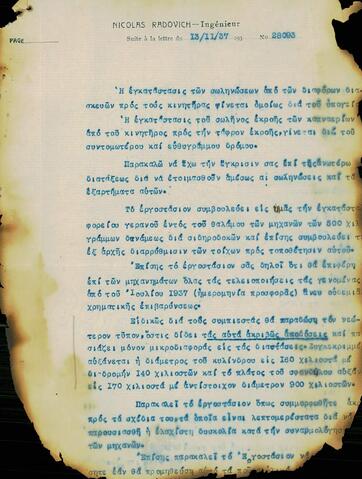 NICOLAS RADOVICH—Ingénieur
PAGE
Suite à la lettre du 13/11/37 193 No. 28093
Ἡ ἐγκατάστασις τῶν σωληνώσεων ἀπό τῶν διαφόρων δια
σκευῶν πρός τούς κινητήρας γίνεται ὁμοίως διά τοῦ ὑπογεί
Ἡ ἐγκατάστασις τοῦ σωλῆνος ἐκροῆς τῶν καπναερίων
ἀπό τοῦ κινητῆρος πρός τήν τάφρον ἐκροῆς, γίνεται διά τοῦ
συντομωτέρου καί εὐθυγράμμου δρόμου.
Παρακαλῶ νά ἔχω τήν ἔγκρισιν σας ἐπί τῆς ἀνωτέρω
διατάξεως διά νά ἑτοιμασθοῦν ἀμέσως αἱ σωληνώσεις καί τά
ἐξαρτήματα αὐτῶν.
Τό ἐργοστάσιον συμβουλεύει εἰς ὑμᾶς τήν ἐγκατάστ
φορείου γερανοῦ ἐντός τοῦ θαλάμου τῶν μηχανῶν τῶν 500 χιλι
γράμμων δυνάμεως διά σιδηροδοκῶν καί ἐπίσης συμβουλεύει
ἐξ ἀρχῆς διαρρύθμισιν τῶν τοίχων πρός τοποθέτησιν αὐτοῦ.
Ἐπίσης τό ἐργοστάσιον σᾶς δηλοῖ ὅτι θά ἐπιφέρῃ
ἐπί τῶν μηχανημάτων ὅλας τάς τελειοποιήσεις τάς γενομένας
ἀπό τοῦ Ἰουλίου 1937 (ἡμερομηνία προσφορᾶς) ἄνευ οὐδεμιᾶ
χρηματικῆς ἐπιβαρύνσεως.
Εἰδικῶς διά τούς συμπιεστάς θά παραδώσῃ τόν νεώ
τερον τύπον, ὅστις δίδει τάς αὐτά ἀκριβῶς ἀποδόσεις καί
σιάζει μόνον μικροδιαφοράς εἰς τάς διαστάσεις. Συγκεκριμέ
αὐξάνεται ἡ διάμετρος τοῦ κυλίνδρου εἰς 160 χιλιοστά μέ
διαδρομήν 140 χιλιοστῶν καί τό πλάτος τοῦ σφονδύλου αὐξάν
εἰς 170 χιλιοστά μέ ἀντίστοιχον διάμετρον 900 χιλιοστῶν.
Παρακαλεῖ τό ἐργοστάσιον ὅπως συμμορφωθῆτε ἀκρ
πρός τά σχέδια του, τά ὁποῖα εἶναι λεπτομερέστατα διά νά
παρουσιασθῇ ἡ ἐλαχίστη δυσκολία κατά τήν συναρμολόγησ
τῶν μηχανῶν.
Ἐπίσης παρακαλεῖ τό Ἐργοστάσιον νά
σητε ἐάν θά προμηθεύσῃ αὐτό τά